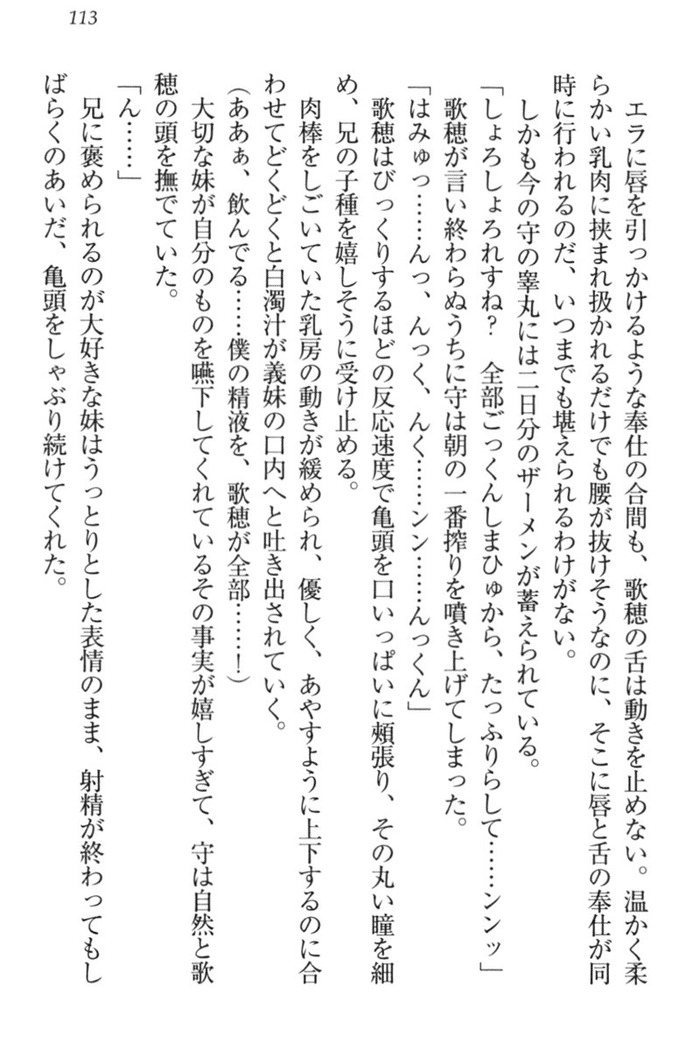 113
エラに唇を引っかけるような奉仕の合間も、歌穂の舌は動きを止めない。温かく柔
らかい乳肉に挟まれ扱かれるだけでも腰が抜けそうなのに、そこに唇と舌の奉仕が同
時に行われるのだ、いつまでも堪えられるわけがない。
しかも今の守の睾丸には二日分のザーメンが蓄えられている。
「しょろしょろれすね? 全部ごっくんしまひゅから、たっふりらして……ンンッ」
歌穂が言い終わらぬうちに守は朝の一番搾りを噴き上げてしまった。
「はみゅっ……んっ、んっく、んく……ンン……んっくん」
歌穂はびっくりするほどの反応速度で亀頭を口いっぱいに頬張り、その丸い瞳を細
め、兄の子種を嬉しそうに受け止める。
肉棒をしごいていた乳房の動きが緩められ、優しく、あやすように上下するのに合
わせてどくどくと白濁汁が義妹の口内へと吐き出されていく。
(ああぁ、飲んでる……僕の精液を、歌穂が全部……!)
大切な妹が自分のものを嚥下してくれているその事実が嬉しすぎて、守は自然と歌
穂の頭を撫でていた。
「ん……」
兄に褒められるのが大好きな妹はうっとりとした表情のまま、射精が終わってもし
ばらくのあいだ、亀頭をしゃぶり続けてくれた。